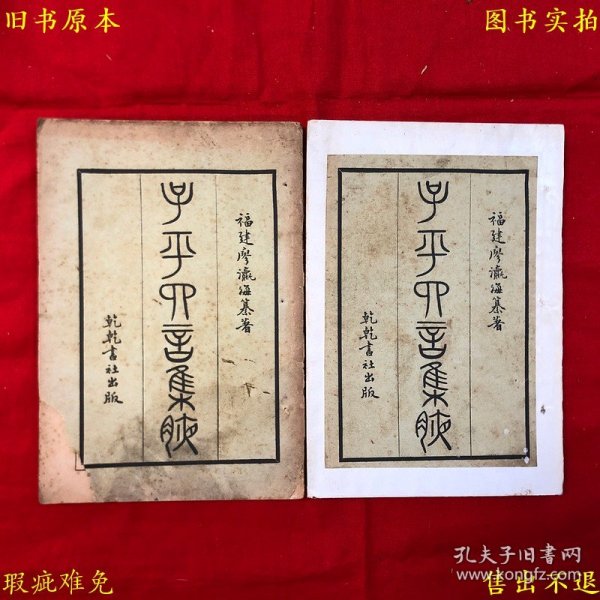 旧书原本
图书实拍
福建廖瀛海纂著
子平四言集腋
乾乾書社出版
福建廖瀛海纂著
子平四言集腋
乾乾書社出版
孔夫子旧书网
www.kongfz.com
瑕疵难免
售出不退